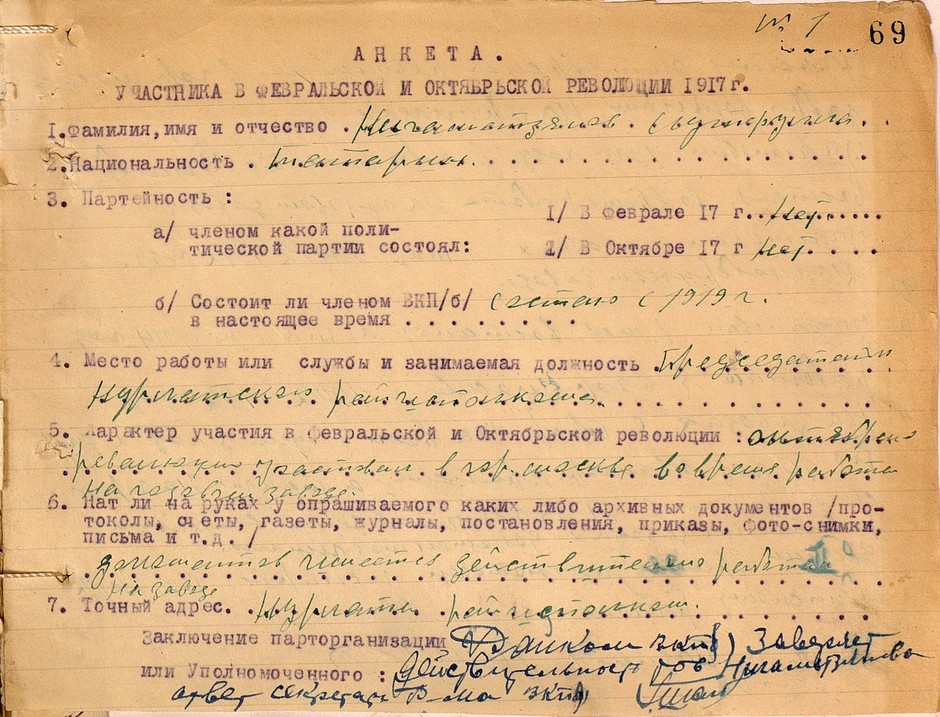 № 1 69
АНКЕТА.
УЧАСТНИКА В ФЕВРАЛЬСКОЙ И ОКТЯБРЬСКОЙ РЕВОЛЮЦИИ 1917г.
1. Фамилия, имя и отчество
2. Национальность . татарин
3. Партейность :
1/ В феврале 17 г. нет.
а/ членом какой поли-
тической партии состоял: 2/ В Октябре 17 г нет
б/ Состоит ли членом ВКП/б/ состою с 1919 г.
в настоящее время
4. Место работы или службы и занимаемая должность Председатель
Нурлатского райисполкома
5. Характер участия в февральской и Октябрьской революции :
революции в гор. москве во время работы
на заводе.
6. Нат ли на руках у опрашиваемого каких либо архивных документов /про-
токолы, счеты, газеты, журналы, постановления, приказы, фото-снимки,
письма и т.д. /
документов действительно работал
на заводе
7. Точный адрес. Нурлаты райисполком.
Заключение парторганизации Райком ВКП(б) заверяет
или Уполномоченного : действительность тов Нигаматзянова
ответ секретарь Р-ма ВКП(б)